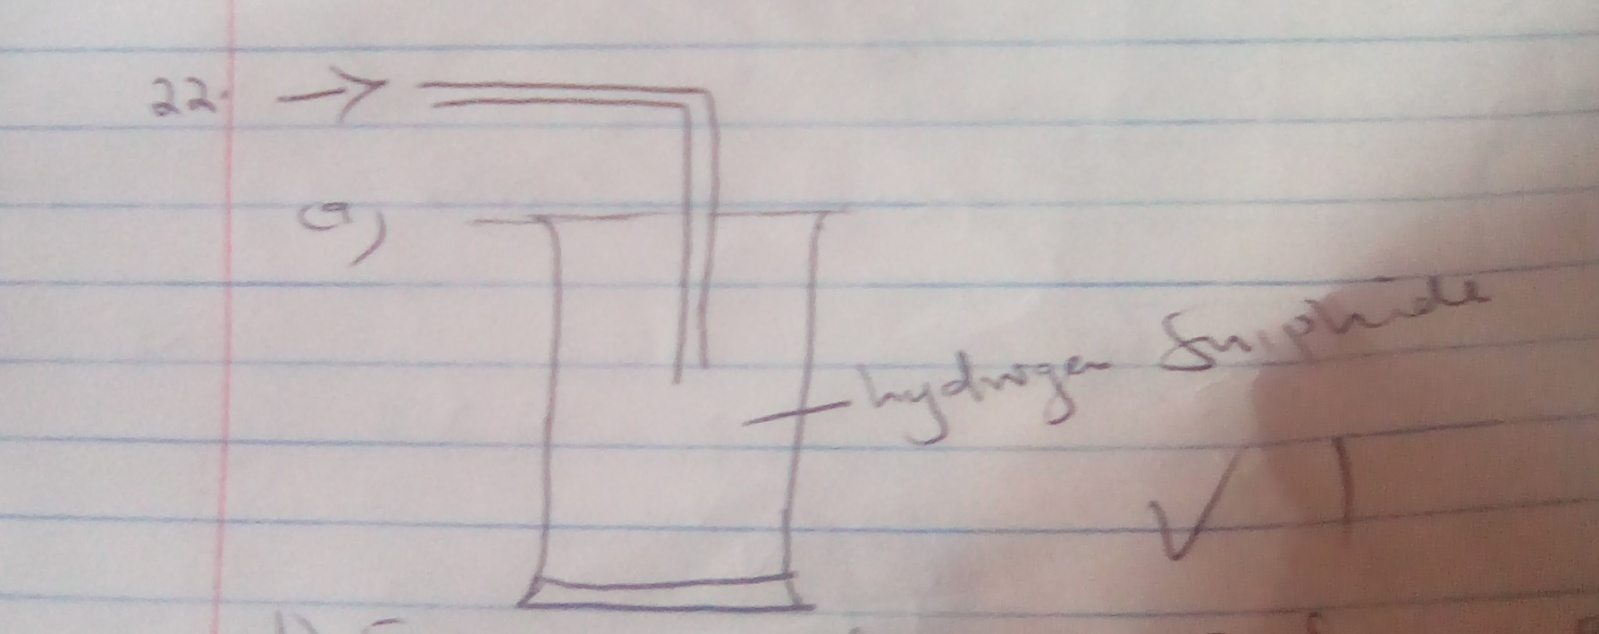 22.
a)
hydrogen Sulphide
1